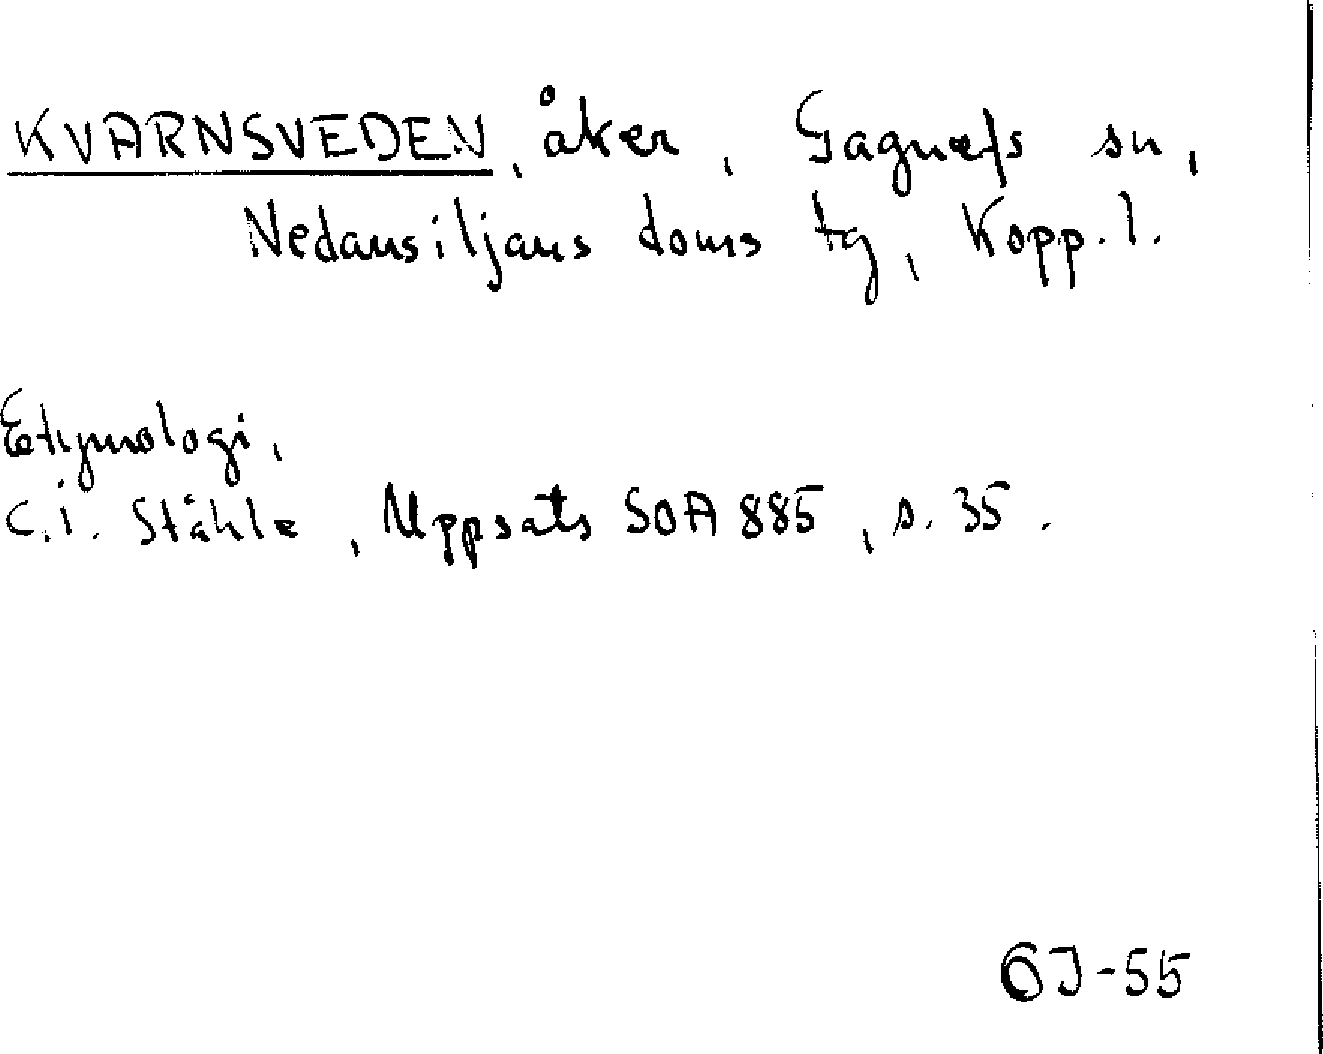 KVARNSVEDEN, åker, Gagnefs sn,
Nedansiljans doms tg, Kopp. l.
Etymologi,
C.I. Ståhle, Uppsats SOA 885, s. 35.
OJ-55